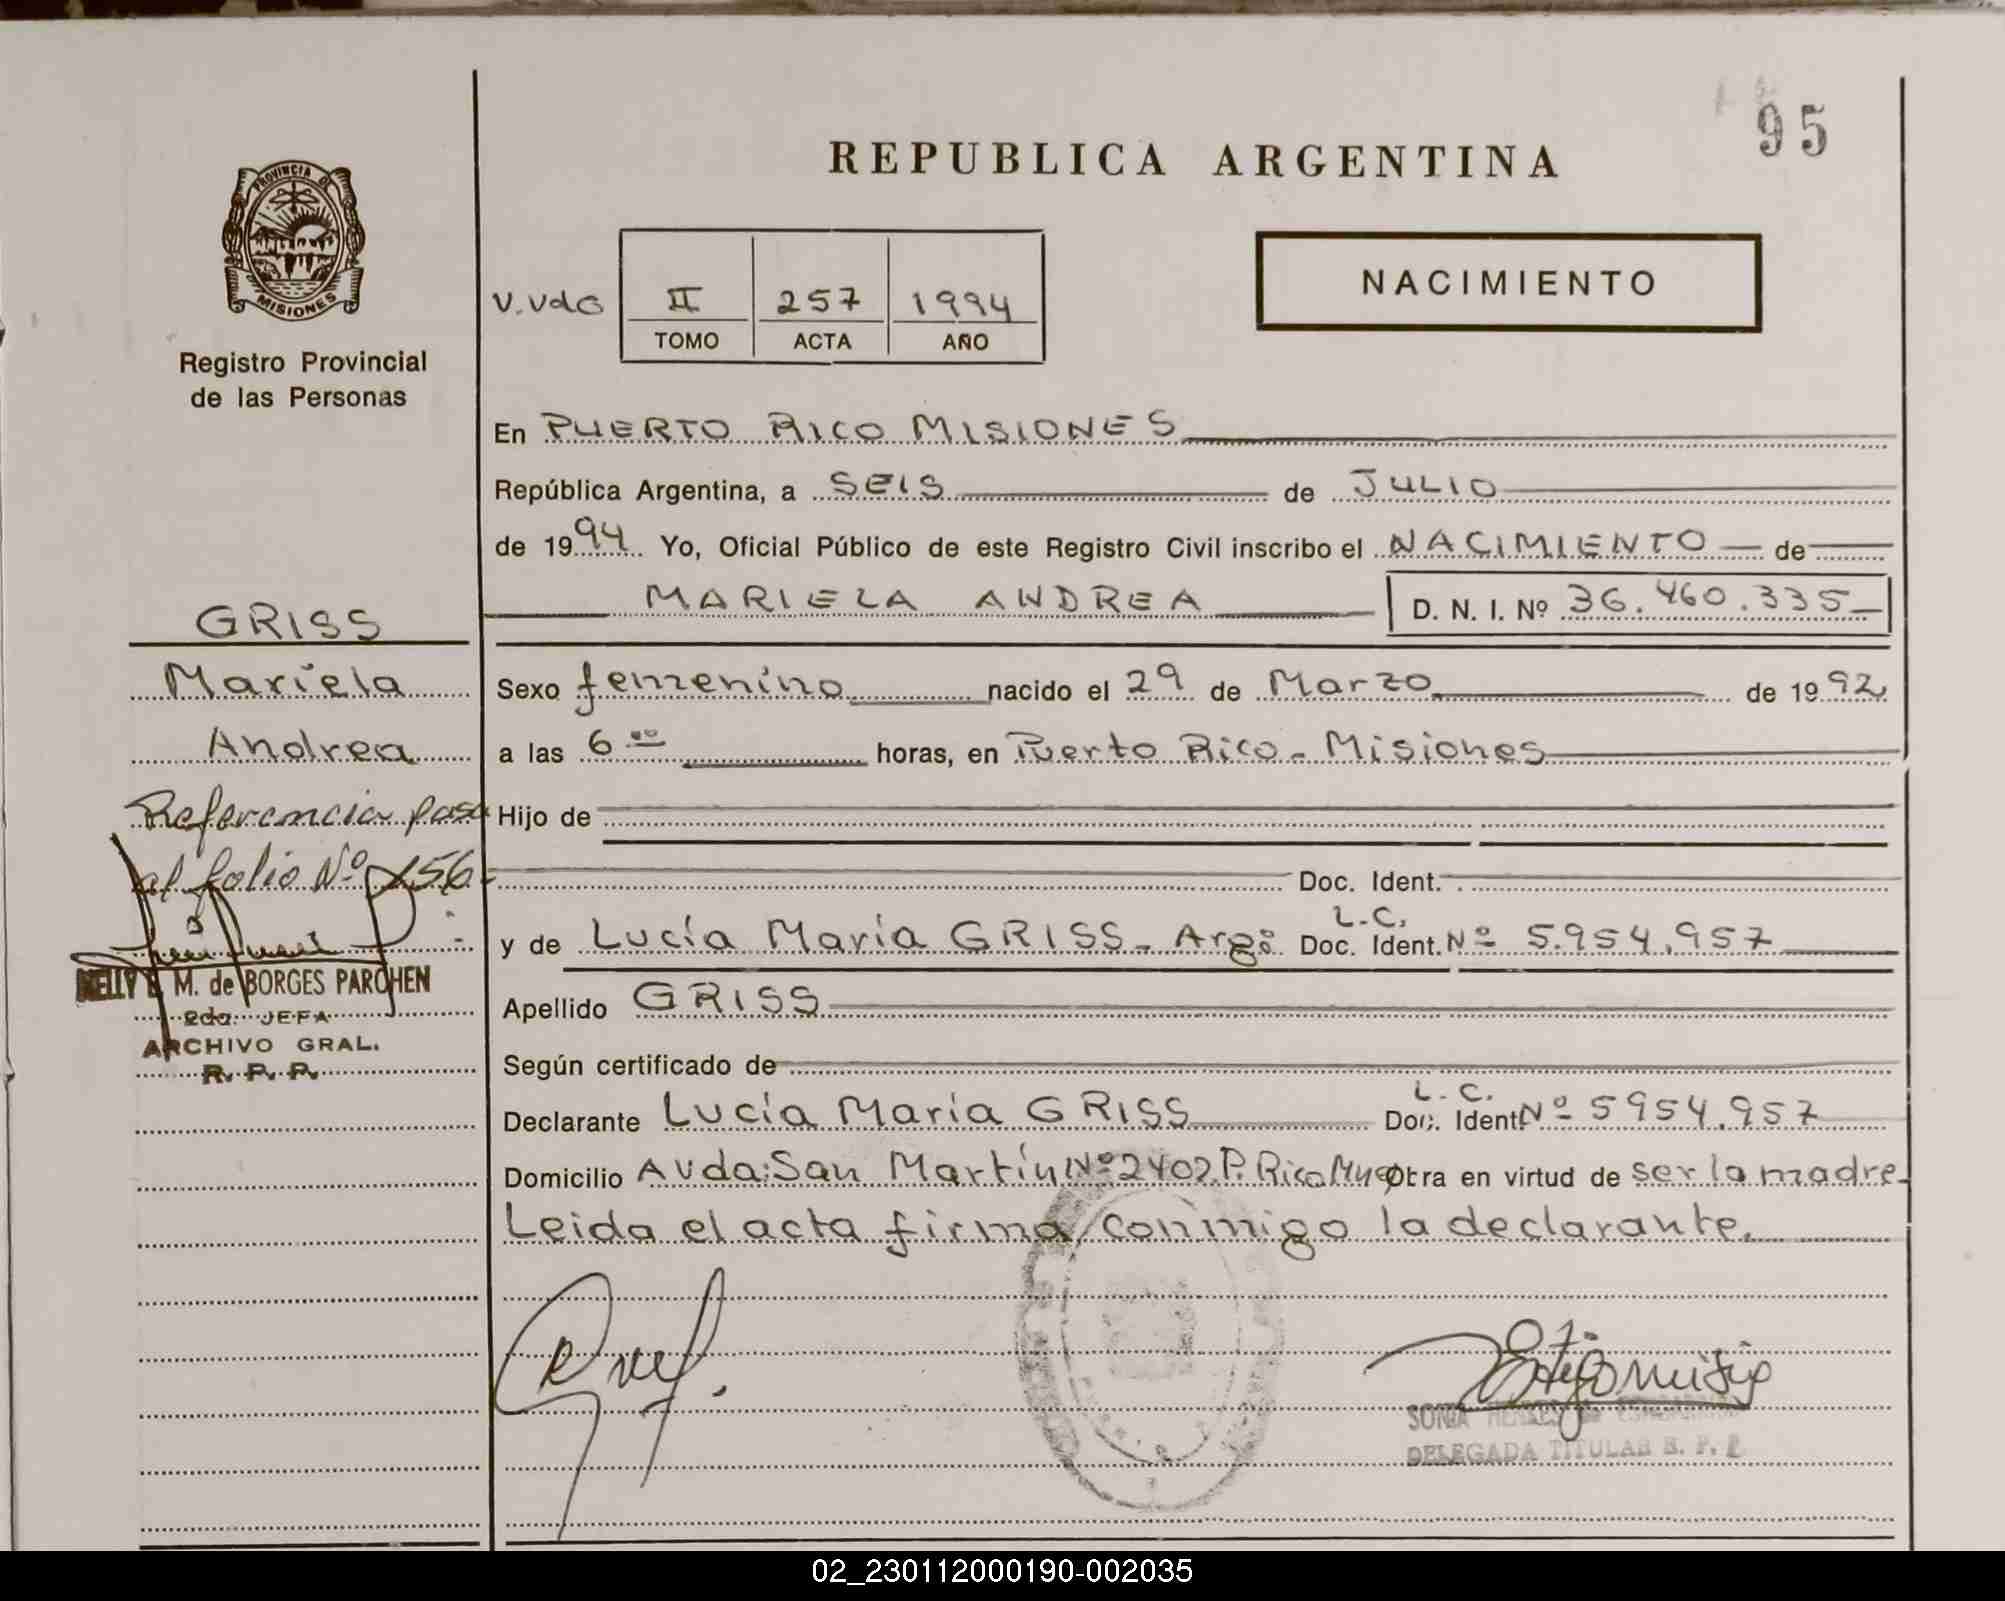 95
REPUBLICA ARGENTINA
PROVINCIA DE
MISIONES
Registro Provincial
de las Personas
II 257 1994
TOMO ACTA AÑO
NACIMIENTO
En PUERTO RICO MISIONES
República Argentina, a SEIS de JULIO
de 1994 Yo, Oficial Público de este Registro Civil inscribo el NACIMIENTO de
MARIELA ANDREA D. N. I. Nº 36.460.335
GRISS
Mariela
Andrea
Referencia pasa
al folio Nº 156
NELLY M. de BORGES PARCHEN
2da. JEFA
ARCHIVO GRAL.
R. P. P.
Sexo femenino nacido el 29 de Marzo de 1992
a las 6 00 horas, en Puerto Rico - Misiones
Hijo de
Doc. Ident.
y de Lucía María GRISS - Argº Doc. Ident. L.C. Nº 5.954.957
Apellido GRISS
Según certificado de
Declarante Lucía María GRISS Doc. Ident. L.C. Nº 5954.957
Domicilio Avda: San Martín Nº 2402 P. Rico Obra en virtud de ser la madre
Leida el acta firma conmigo la declarante.
SONIA
DELEGADA TITULAR R. P. P.
02_230112000190-002035